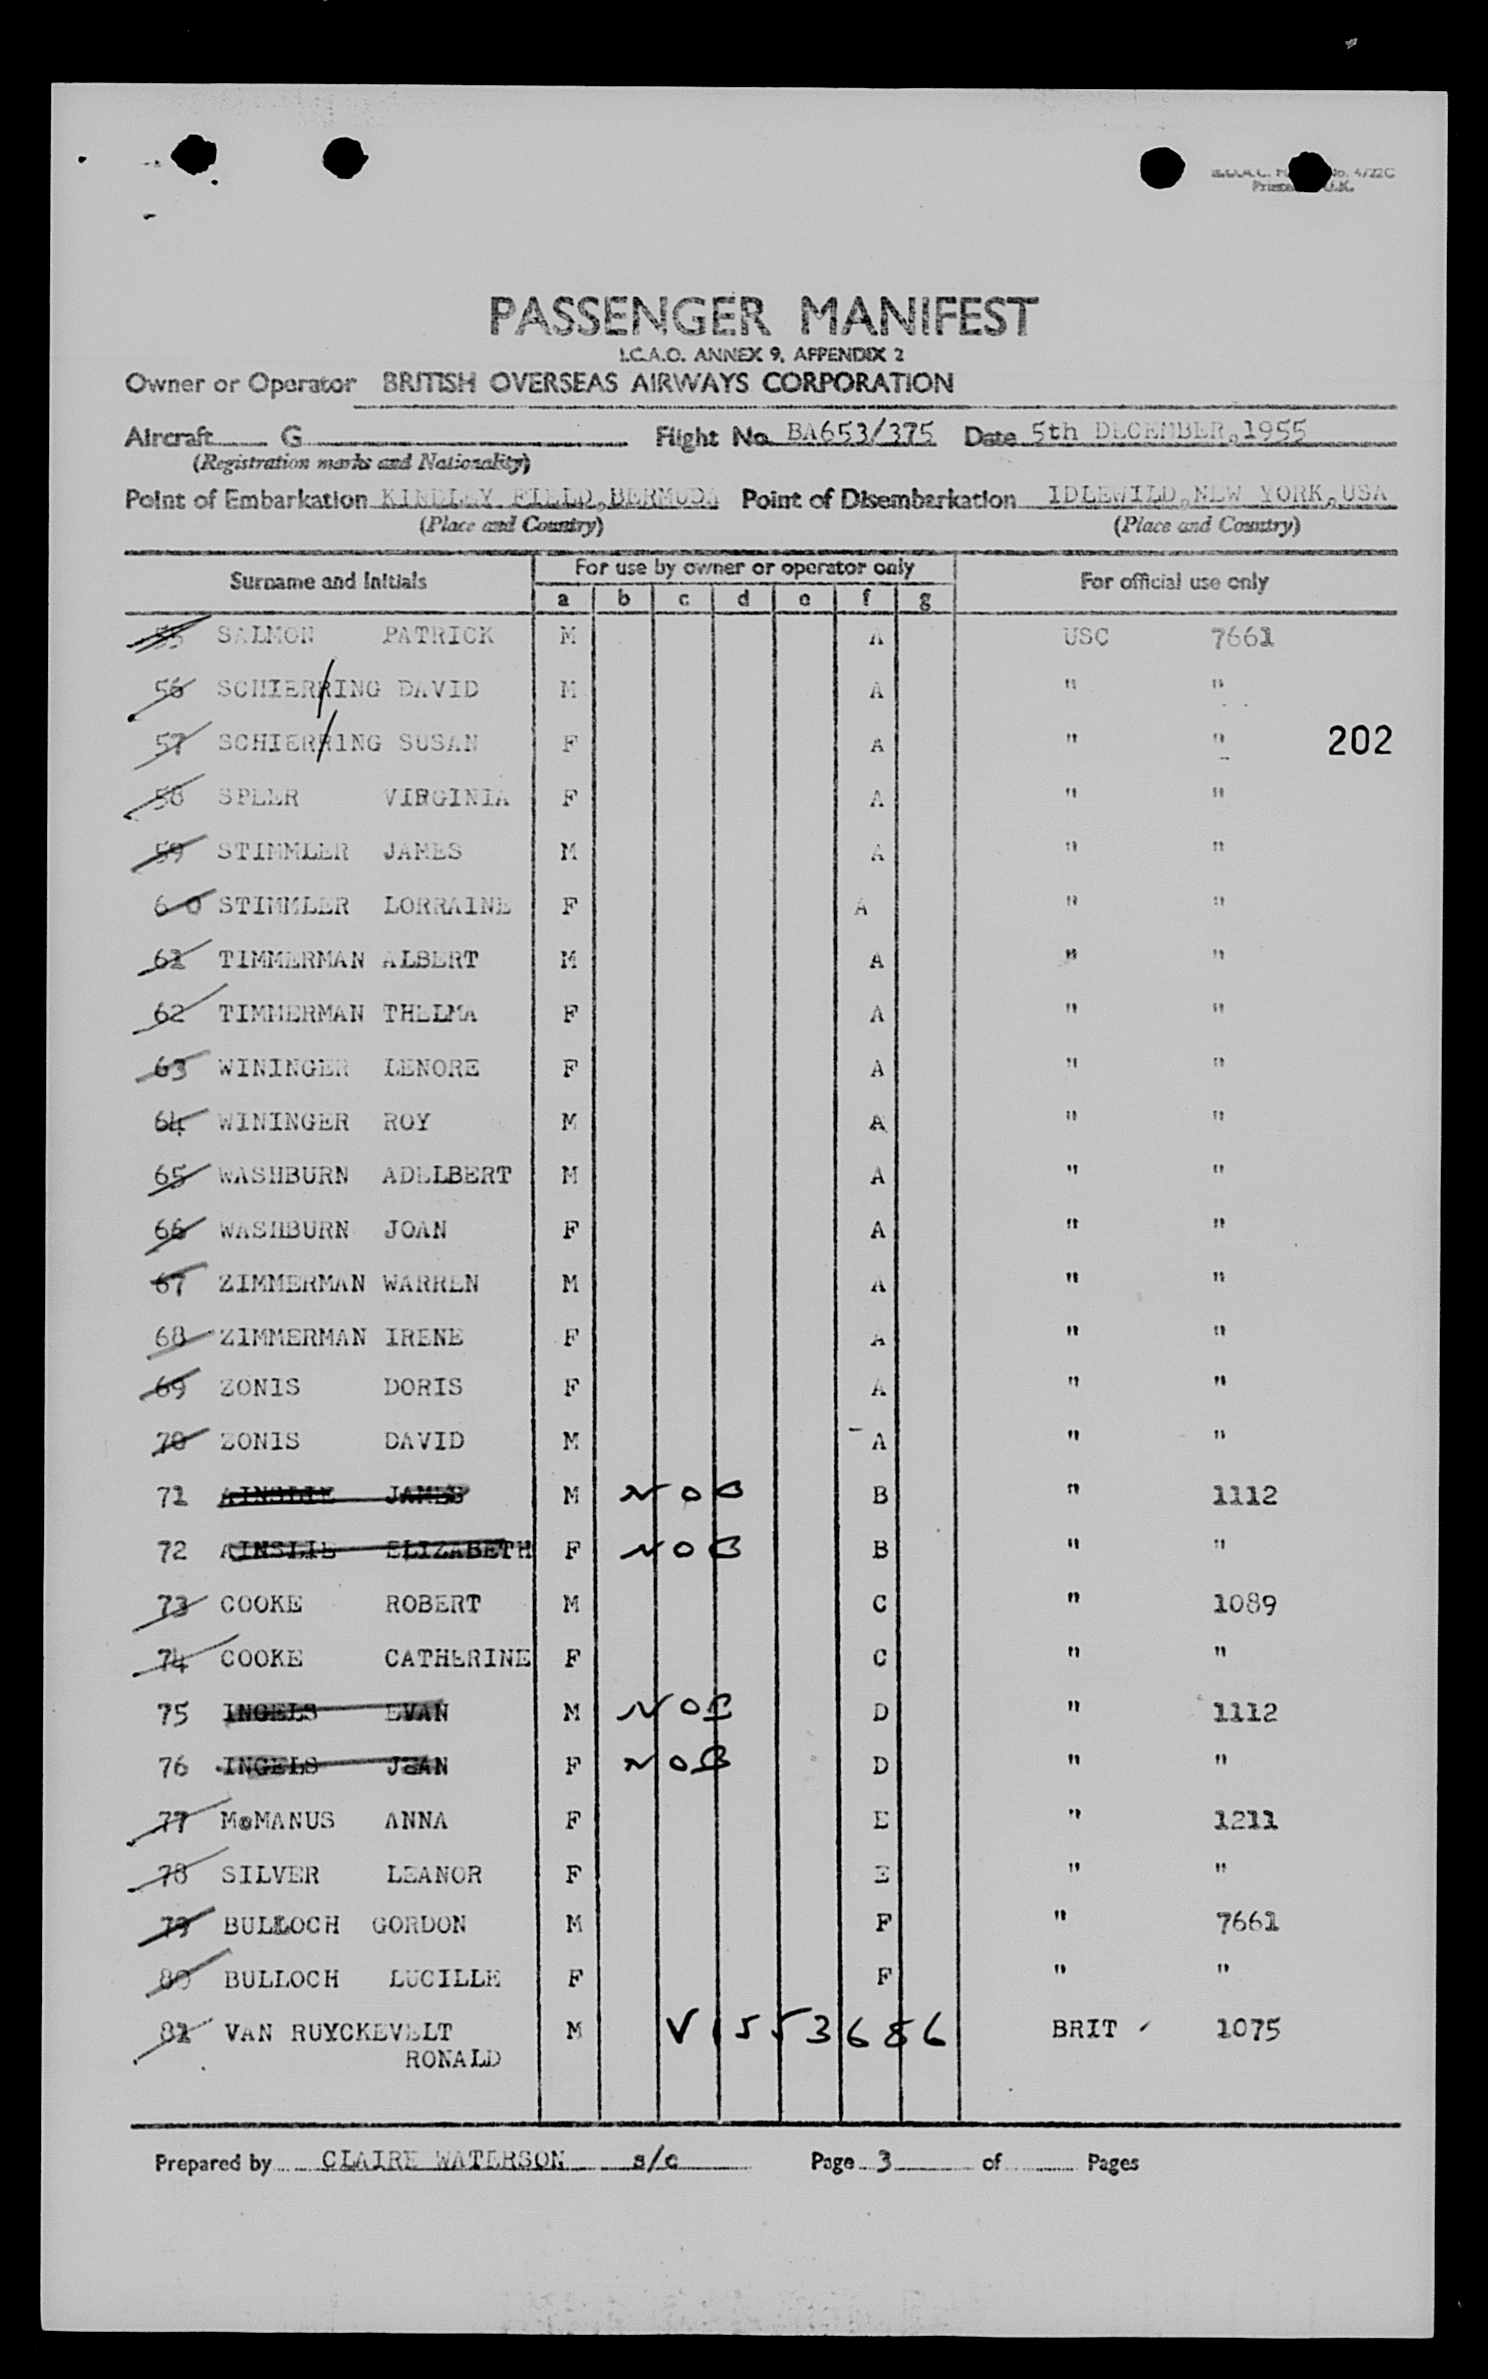 Printed U.K.
PASSENGER MANIFEST
I.C.A.O. ANNEX 9, APPENDIX 2
Owner or Operator BRITISH OVERSEAS AIRWAYS CORPORATION
Aircraft G Flight No. BA653/375 Date 5th DECEMBER, 1955
(Registration marks and Nationality)
Point of Embarkation KINDLEY FIELD, BERMUDA Point of Disembarkation IDLEWILD, NEW YORK, USA
(Place and Country) (Place and Country)
Surname and Initials For use by owner or operator only For official use only
a b c d e f g
55 SALMON PATRICK M A USC 7661
56 SCHIERRING DAVID M A " "
57 SCHIERR1NG SUSAN F A " " 202
58 SPLER VIRGINIA F A " "
59 STIMMLER JAMES M A " "
60 STIMMLER LORRA1NE F A " "
61 TIMMERMAN ALBERT M A " "
62 TIMMERMAN THELMA F A " "
63 WININGER LENORE F A " "
64 WININGER ROY M A " "
65 WASHBURN ADELBERT M A " "
66 WASHBURN JOAN F A " "
67 ZIMMERMAN WARREN M A " "
68 Z1MMERMAN IRENE F A " "
69 ZONIS DORIS F A " "
70 ZON1S DAVID M A " "
71 AINSLIE JAMES M NOB B " 1112
72 AINSLIE ELIZABETH F NOB B " "
73 COOKE ROBERT M C " 1089
74 COOKE CATHERINE F C " "
75 INGELS EVAN M NOB D " 1112
76 INGELS JEAN F NOB D " "
77 McMANUS ANNA F E " 1211
78 SILVER LEANOR F E " "
79 BULLOCH GORDON M F " 7661
80 BULLOCH LUCILLE F F " "
81 VAN RUYCKEVELT M V 1553686 BRIT ✓ 1075
RONALD
Prepared by CLAIRE WATERSON s/c Page 3 of Pages